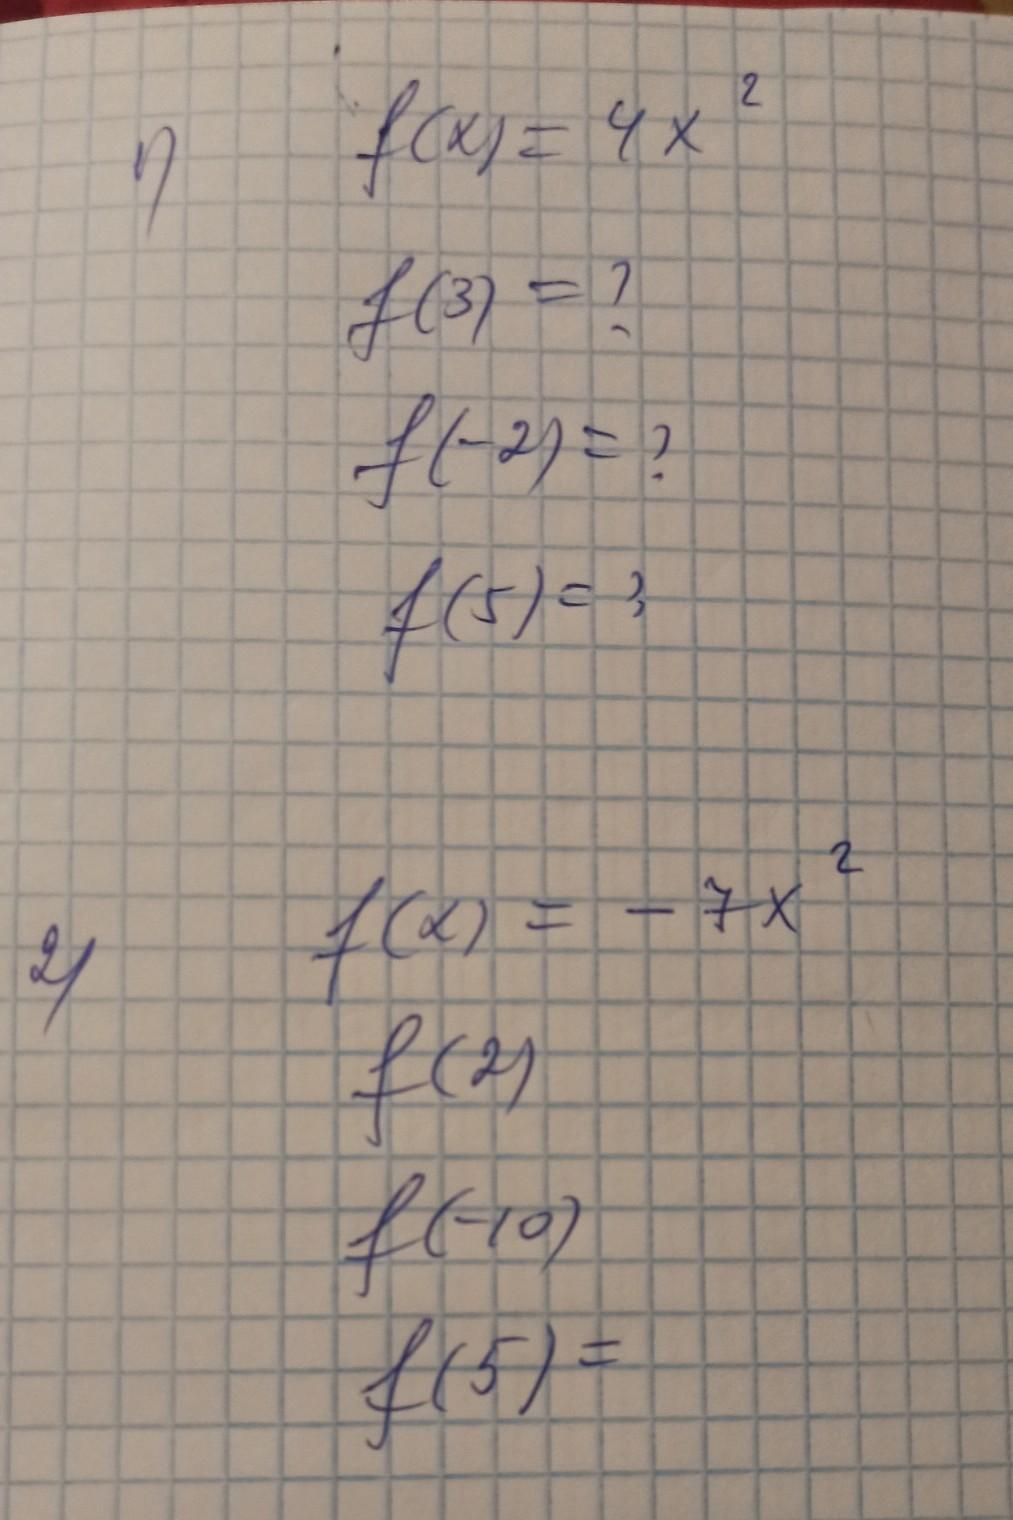 1) f(x) = 4x²
f(3) = ?
f(-2) = ?
f(5) = ?
2) f(x) = -7x²
f(2)
f(-10)
f(5) =